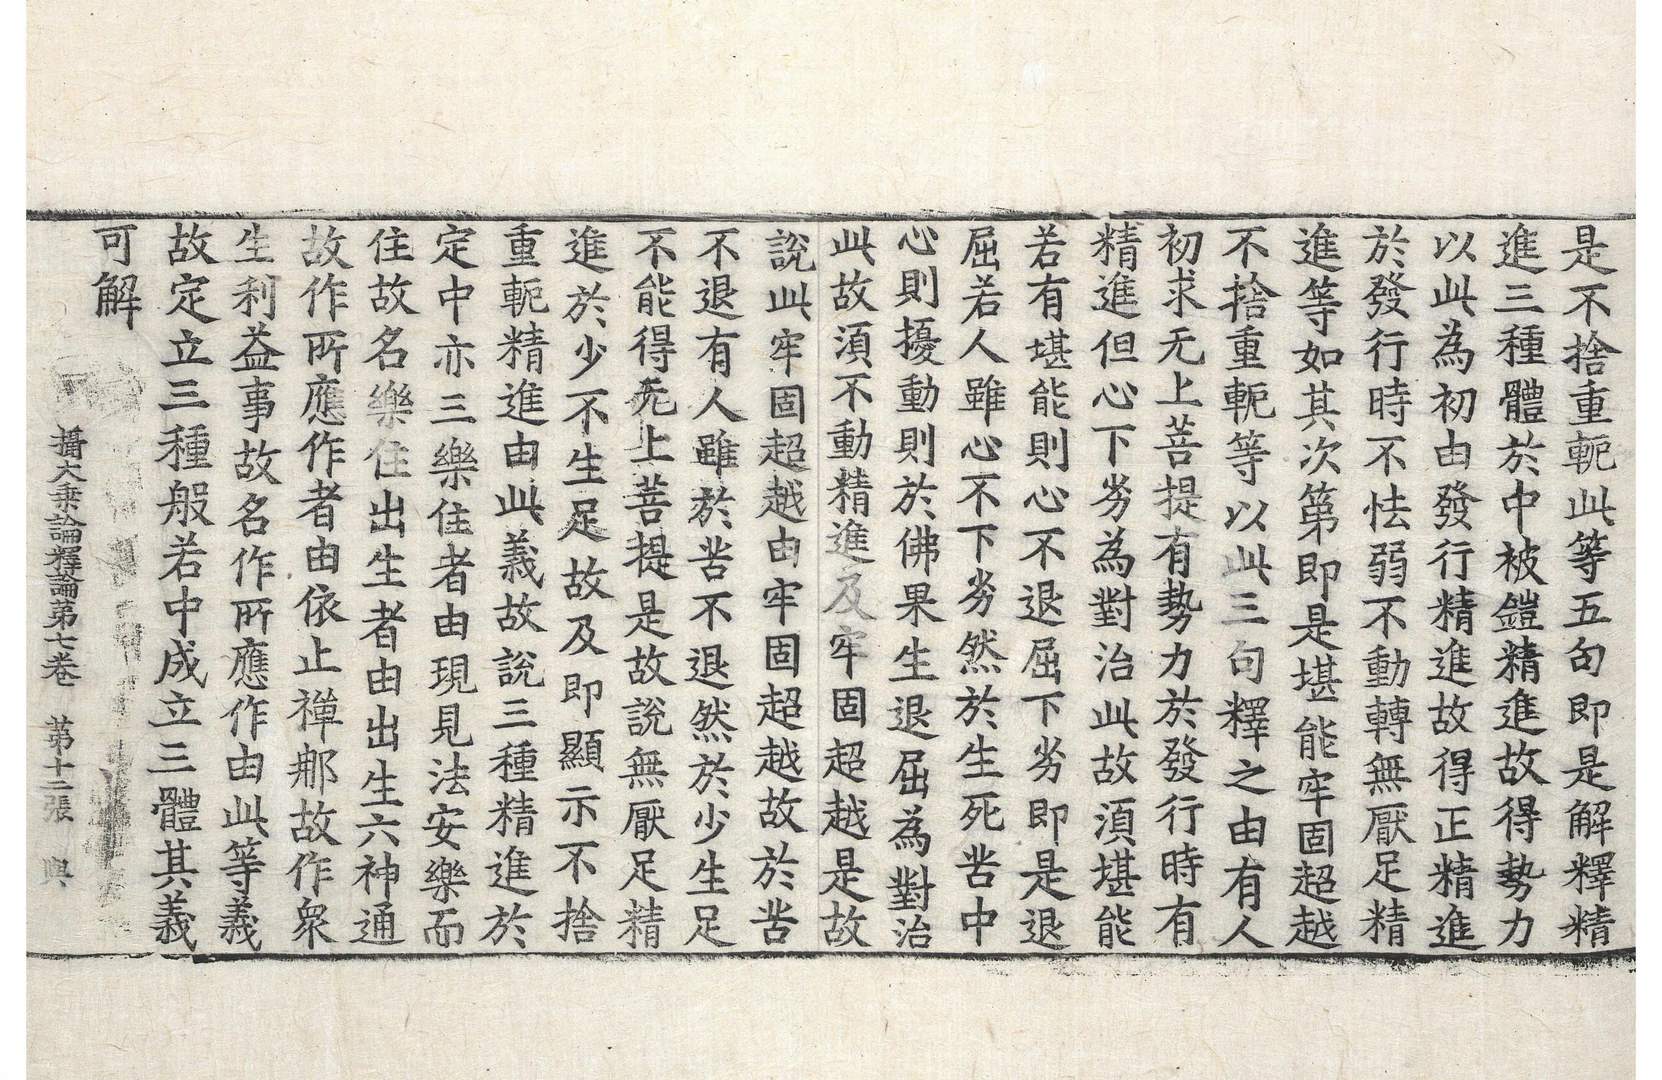 是不捨重軛此等五句即是解釋精
進三種體於中被鎧精進故得勢力
以此為初由發行精進故得正精進
於發行時不怯弱不動轉無厭足精
進等如其次第即是堪能牢固超越
不捨重軛等以此三句釋之由有人
初求无上菩提有勢力於發行時有
精進但心下劣為對治此故須堪能
若有堪能則心不退屈下劣即是退
屈若人雖心不下劣然於生死苦中
心則擾動則於佛果生退屈為對治
此故須不動精進及牢固超越是故
說此牢固超越由牢固超越故於苦
不退有人雖於苦不退然於少生足
不能得无上菩提是故說無厭足精
進於少不生足故及即顯示不捨
重軛精進由此義故說三種精進於
定中亦三樂住者由現見法安樂而
住故名樂住出生者由出生六神通
故作所應作者由依止禪那故作衆
生利益事故名作所應作由此等義
故定立三種般若中成立三體其義
可解
攝大乘論釋論第七卷　第十二張　興